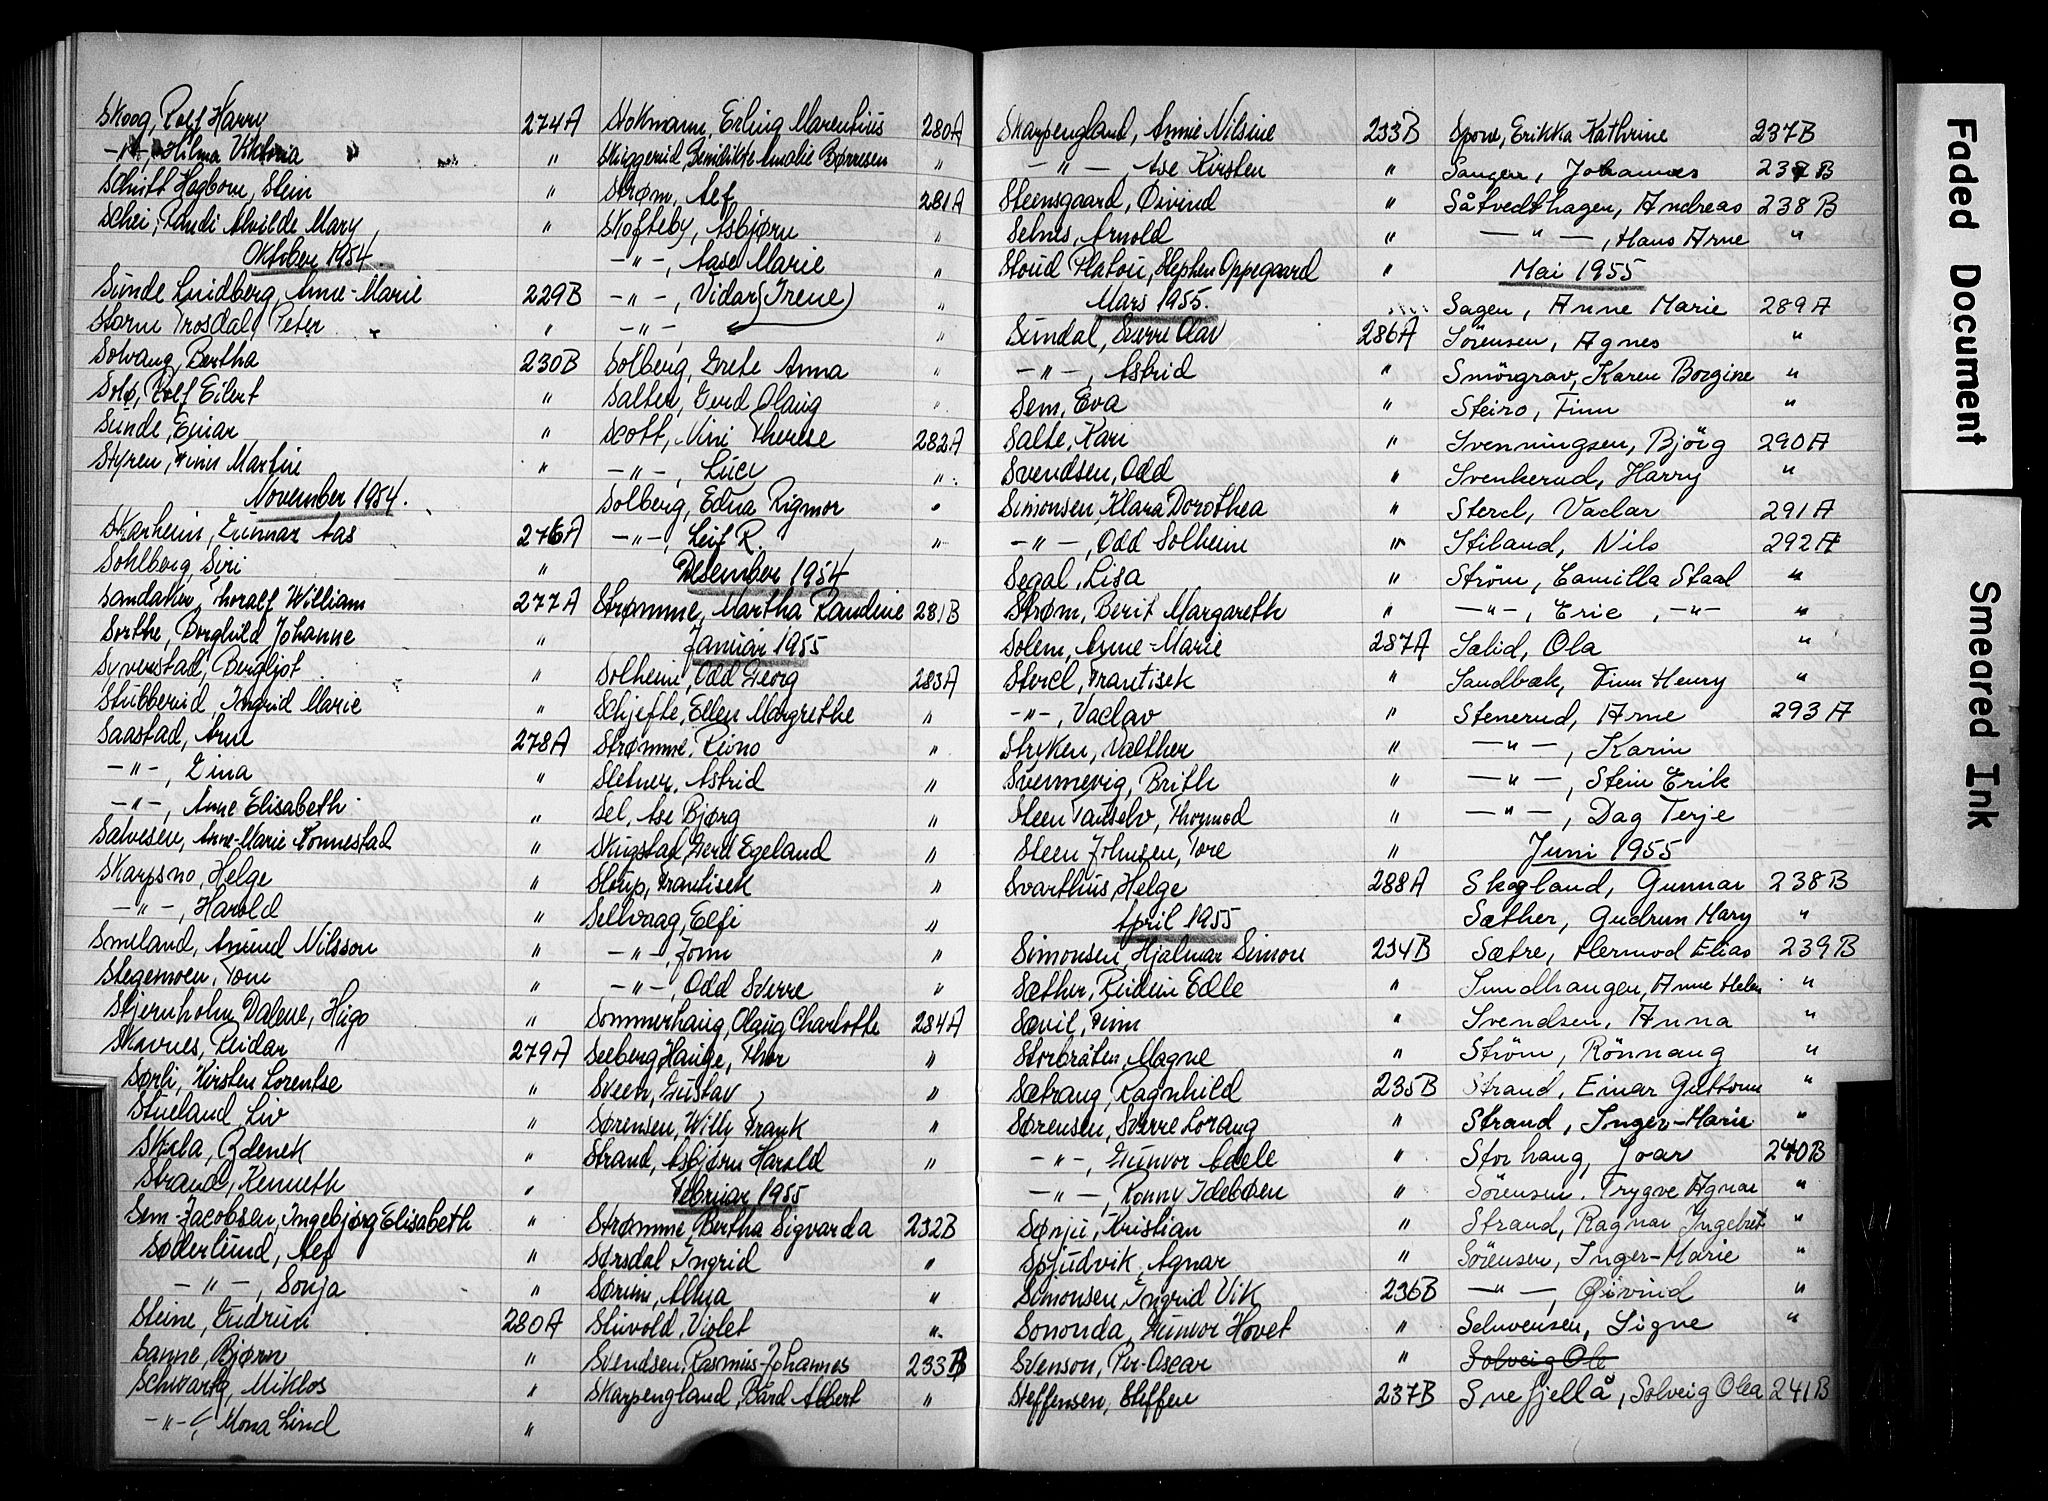 Skoog, Rolf Harry 274A
-"-, Hilma Viktoria "
Schutt Hagborn, Stein "
Schei, Randi Alvilde Mary "
Oktober 1954.
Sunde Lundberg, Anne-Marie 229B
Storm Trosdal, Peter "
Solvang, Bertha 230B
Solø, Rolf Eilert "
Sunde, Einar "
Styren, Finn Martin "
November 1954.
Skarheim, Gunnar Aas 276A
Sohlberg, Siri "
Sandaker, Thoralf William 277A
Sorthe, Borghild Johanne "
Syverstad, Bergljot "
Stubberud, Ingrid Marie "
Saastad, Arne 278A
-"-, Eina "
-"-, Anne Elisabeth "
Salvesen, Anne-Marie Tonnestad "
Skarpsno, Helge "
-"-, Harold "
Smeland, Amund Nilsson "
Stegemoen, Tom "
Stjernholm Dalene, Hugo "
Skavnes, Reidar 279A
Sørli, Kirsten Lorentse "
Stueland Liv "
Skuba, Zdenek "
Strand, Kenneth "
Sem-Jacobsen, Ingebjørg Elisabeth "
Søderlund, Alf "
-"-, Sonja "
Steine, Gudrun 280A
Sanne, Bjørn "
Schwartz, Miklos "
-"-, Mona Lind "
Stokmann, Erling Marentius 280A
Skiggerud, Benedikte Amalie Børresen "
Strøm, Alf 281A
Skofteby, Asbjørn "
-"-, Aase Marie "
-"-, Vidar (Irene) "
-"- "
Solberg, Grete Anna "
Salter, Gerd Olaug "
Scott, Nini Therese 282A
-"-, Lucy "
Solberg, Edna Rigmor "
-"-, Leif R. "
Desember 1954
Strømme, Martha Randine 281B
Januar 1955
Solheim, Odd Georg 283A
Schjefte, Ellen Margrethe "
Strømme, Reino "
Sletner, Astrid "
Sel, Åse Bjørg "
Skugstad, Gerd Egeland "
Stoup, Frantisek "
Sellvaag, Elfi "
-"-, Jonn "
-"-, Odd Sverre "
Sommerhaug, Olaug Charlotte 284A
Seeberg Hauge, Thor "
Sveen, Gustav "
Sørensen, Willi Frank "
Strand, Asbjørn Harold "
Februar 1955
Strømme, Bertha Sigvarda 232B
Sørsdal, Ingrid "
Sørum, Alma "
Stuvold, Violet "
Svendsen, Rasmus-Johannes 233B
Skarpengland, Bård Albert "
Skarpengland, Annie Nilsine 233B
-"-, Åse Kirsten "
Steensgaard, Øivind "
Selnes, Arnold "
Stoud Platou, Stephen Oppegaard "
Mars 1955.
Sundal, Sverre Olav 286A
-"-, Astrid "
Sem, Eva "
Salte, Kari "
Svendsen, Odd "
Simonsen, Klara Dorothea "
-"-, Odd Solheim "
Segal, Lisa "
Strøm, Berit Margareth "
Solem, Anne-Marie 287A
Stercl, Frantisek "
-"-, Vaclav "
Stryken, Valther "
Svennevig, Brith "
Steen Tanselv, Thormod "
Steen Johnsen, Tore "
Svarthus, Helge 288A
April 1955
Simonsen, Hjalmar Simon 234B
Sæther, Reidun Edle "
Sævil, Finn "
Storbråten, Magne "
Sætrang, Ragnhild 235B
Sørensen, Sverre Lorang "
-"-, Gunvor Adele "
-"-, Ronny Idebøen "
Sønju, Kristian "
Spjudvik, Agnar "
Simonsen, Ingrid Vik 236B
Sononda, Gunvor Hovet "
Svenson, Per-Oscar "
Steffensen, Steffen 237B
Spove, Erikka Kathrine 237B
Sangen, Johannes 237B
Såtvedthagen, Andreas 238B
-"-, Hans Arne "
Mai 1955
Sagen, Anne Marie 289A
Sörensen, Agnes "
Smörgrav, Karen Borgine "
Steiro, Finn "
Svenningsen, Björg 290A
Svenkerud, Harry "
Stercl, Vaclav 291A
Stiland, Nils 292A
Ström, Camilla Staal "
-"-, Eric, -"- "
Salid, Ola "
Sandbæk, Finn Henry "
Stenerud, Arne 293A
-"-, Karin "
-"-, Stein Erik "
-"-, Dag Terje "
Juni 1955
Skogland, Gunnar 238B
Sæther, Gudrun Mary "
Sætre, Hermod Elias 239B
Sundhaugen, Anne Helen "
Svendsen, Anna "
Ström, Rönnaug "
Strand, Einar Guttorm "
Strand, Inger-Marie "
Storhaug, Joar 240B
Sörensen, Trygve Agnar "
Strand, Ragnar Ingebret "
Sörensen, Inger-Marie "
-"-, Øivind "
Seluvensen, Signe "
Solveig Ole
Snefjellå, Solveig Olea 241B
Faded Document
Smeared Ink